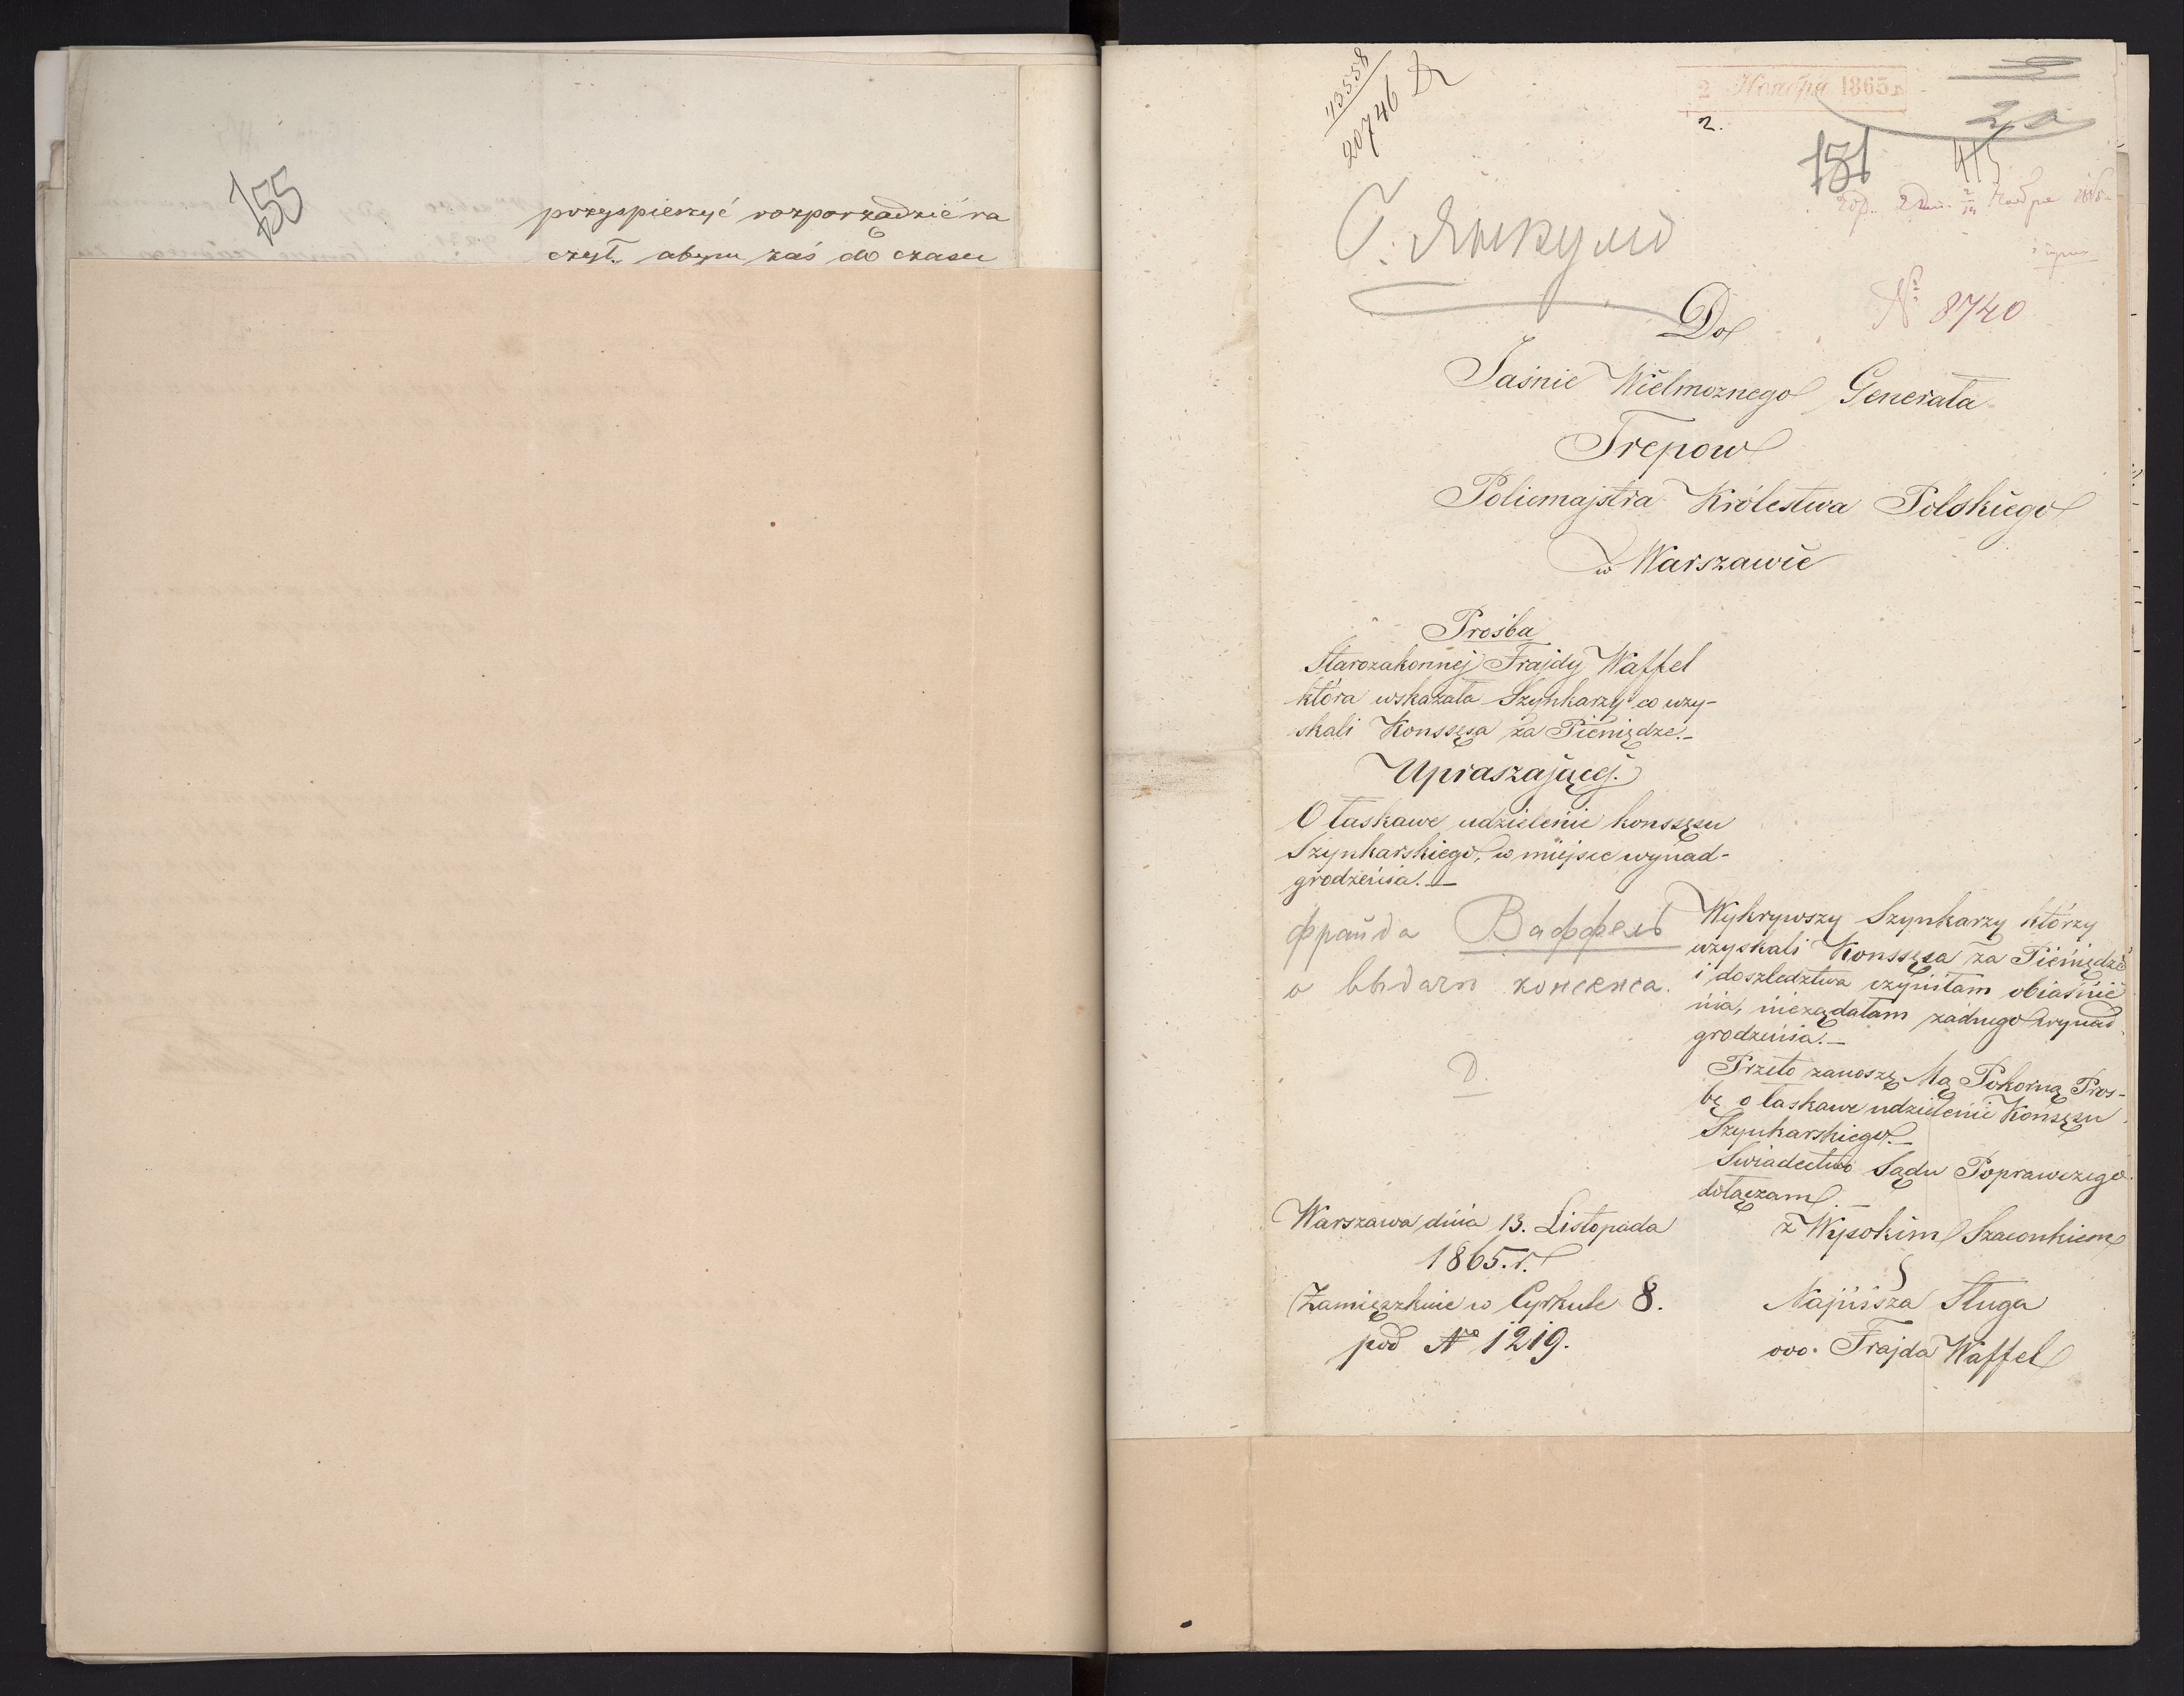 155
pożyspieszyć rozporządzić ra
czył. abym zaś do czasu
43558
20746
2 Ноября 1865 г.
2.
151
415
№ 8740
Do
Jaśnie Wielmoznego Generała
Trepow
Policmajstra Królestwa Polskiego
w Warszawie
Prośba
Starozakonnej Frajdy Waffel
która wskazała Szynkarzy co uzy-
skali Konssęsa za Pieniędze.-
Upraszającej.
O łaskawe udzielenie konssęsu
Szynkarskiego, w miejsce wynad-
grodzenia.-
Фрайда Ваффель
о выдачи консенса.
D.
Wykrywszy Szynkarzy którzy
uzyskali Konssęsa za Pieniędze
i doszledztwa czyniłam obiaśnie
nia, nieządałam żadnego wynad
grodzenia.-
Przeto zanoszę Mą Pokorną Proś-
bę o łaskawe udzielenie Konsęsu
Szynkarskiego.-
Swiadectwo Sądu Poprawczego
dołączam
z Wysokim Szacunkiem
Warszawa dnia 13. Listopada
1865. r.
Zamięszkuie w Cyrkule 8.
pod No 1219.
Najniśsza Sługa
ooo. Frajda Waffel